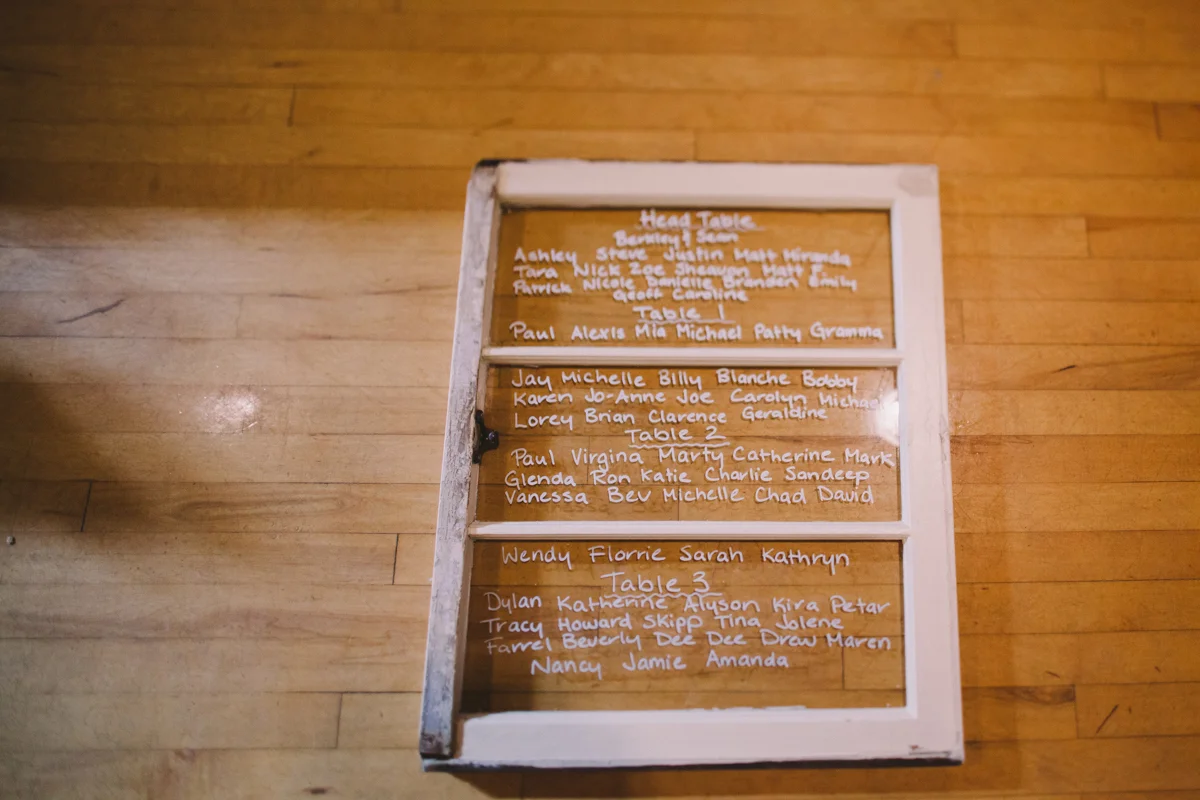 Head Table
Berkley & Sean
Ashley Steve Justin Matt Miranda
Tara Nick Zoe Sheavon Matt F.
Patrick Nicole Danielle Branden Emily
Geoff Caroline
Table 1
Paul Alexis Mia Michael Patty Gramma
Jay Michelle Billy Blanche Bobby
Karen Jo-Anne Joe Carolyn Michael
Lorey Brian Clarence Geraldine
Table 2
Paul Virgina Marty Catherine Mark
Glenda Ron Katie Charlie Sandeep
Vanessa Bev Michelle Chad David
Wendy Florrie Sarah Kathryn
Table 3
Dylan Katherine Alyson Kira Petar
Tracy Howard Skipp Tina Jolene
Farrel Beverly Dee Dee Drew Maren
Nancy Jamie Amanda